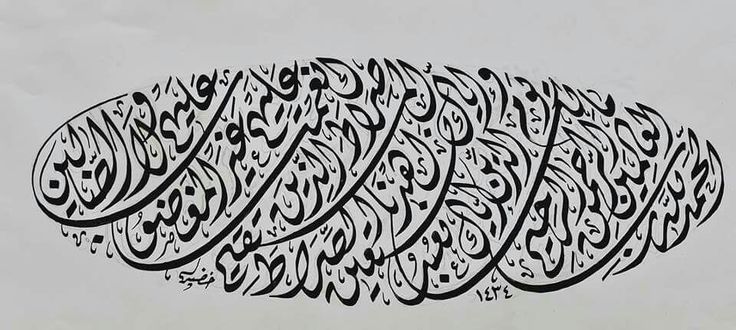 الحمد لله رب العالمين الرحمن الرحيم ملك يوم الدين إياك نعبد وإياك نستعين اهدنا الصراط المستقيم صراط الذين أنعمت عليهم غير المغضوب عليهم ولا الضالين
١٤٣٤